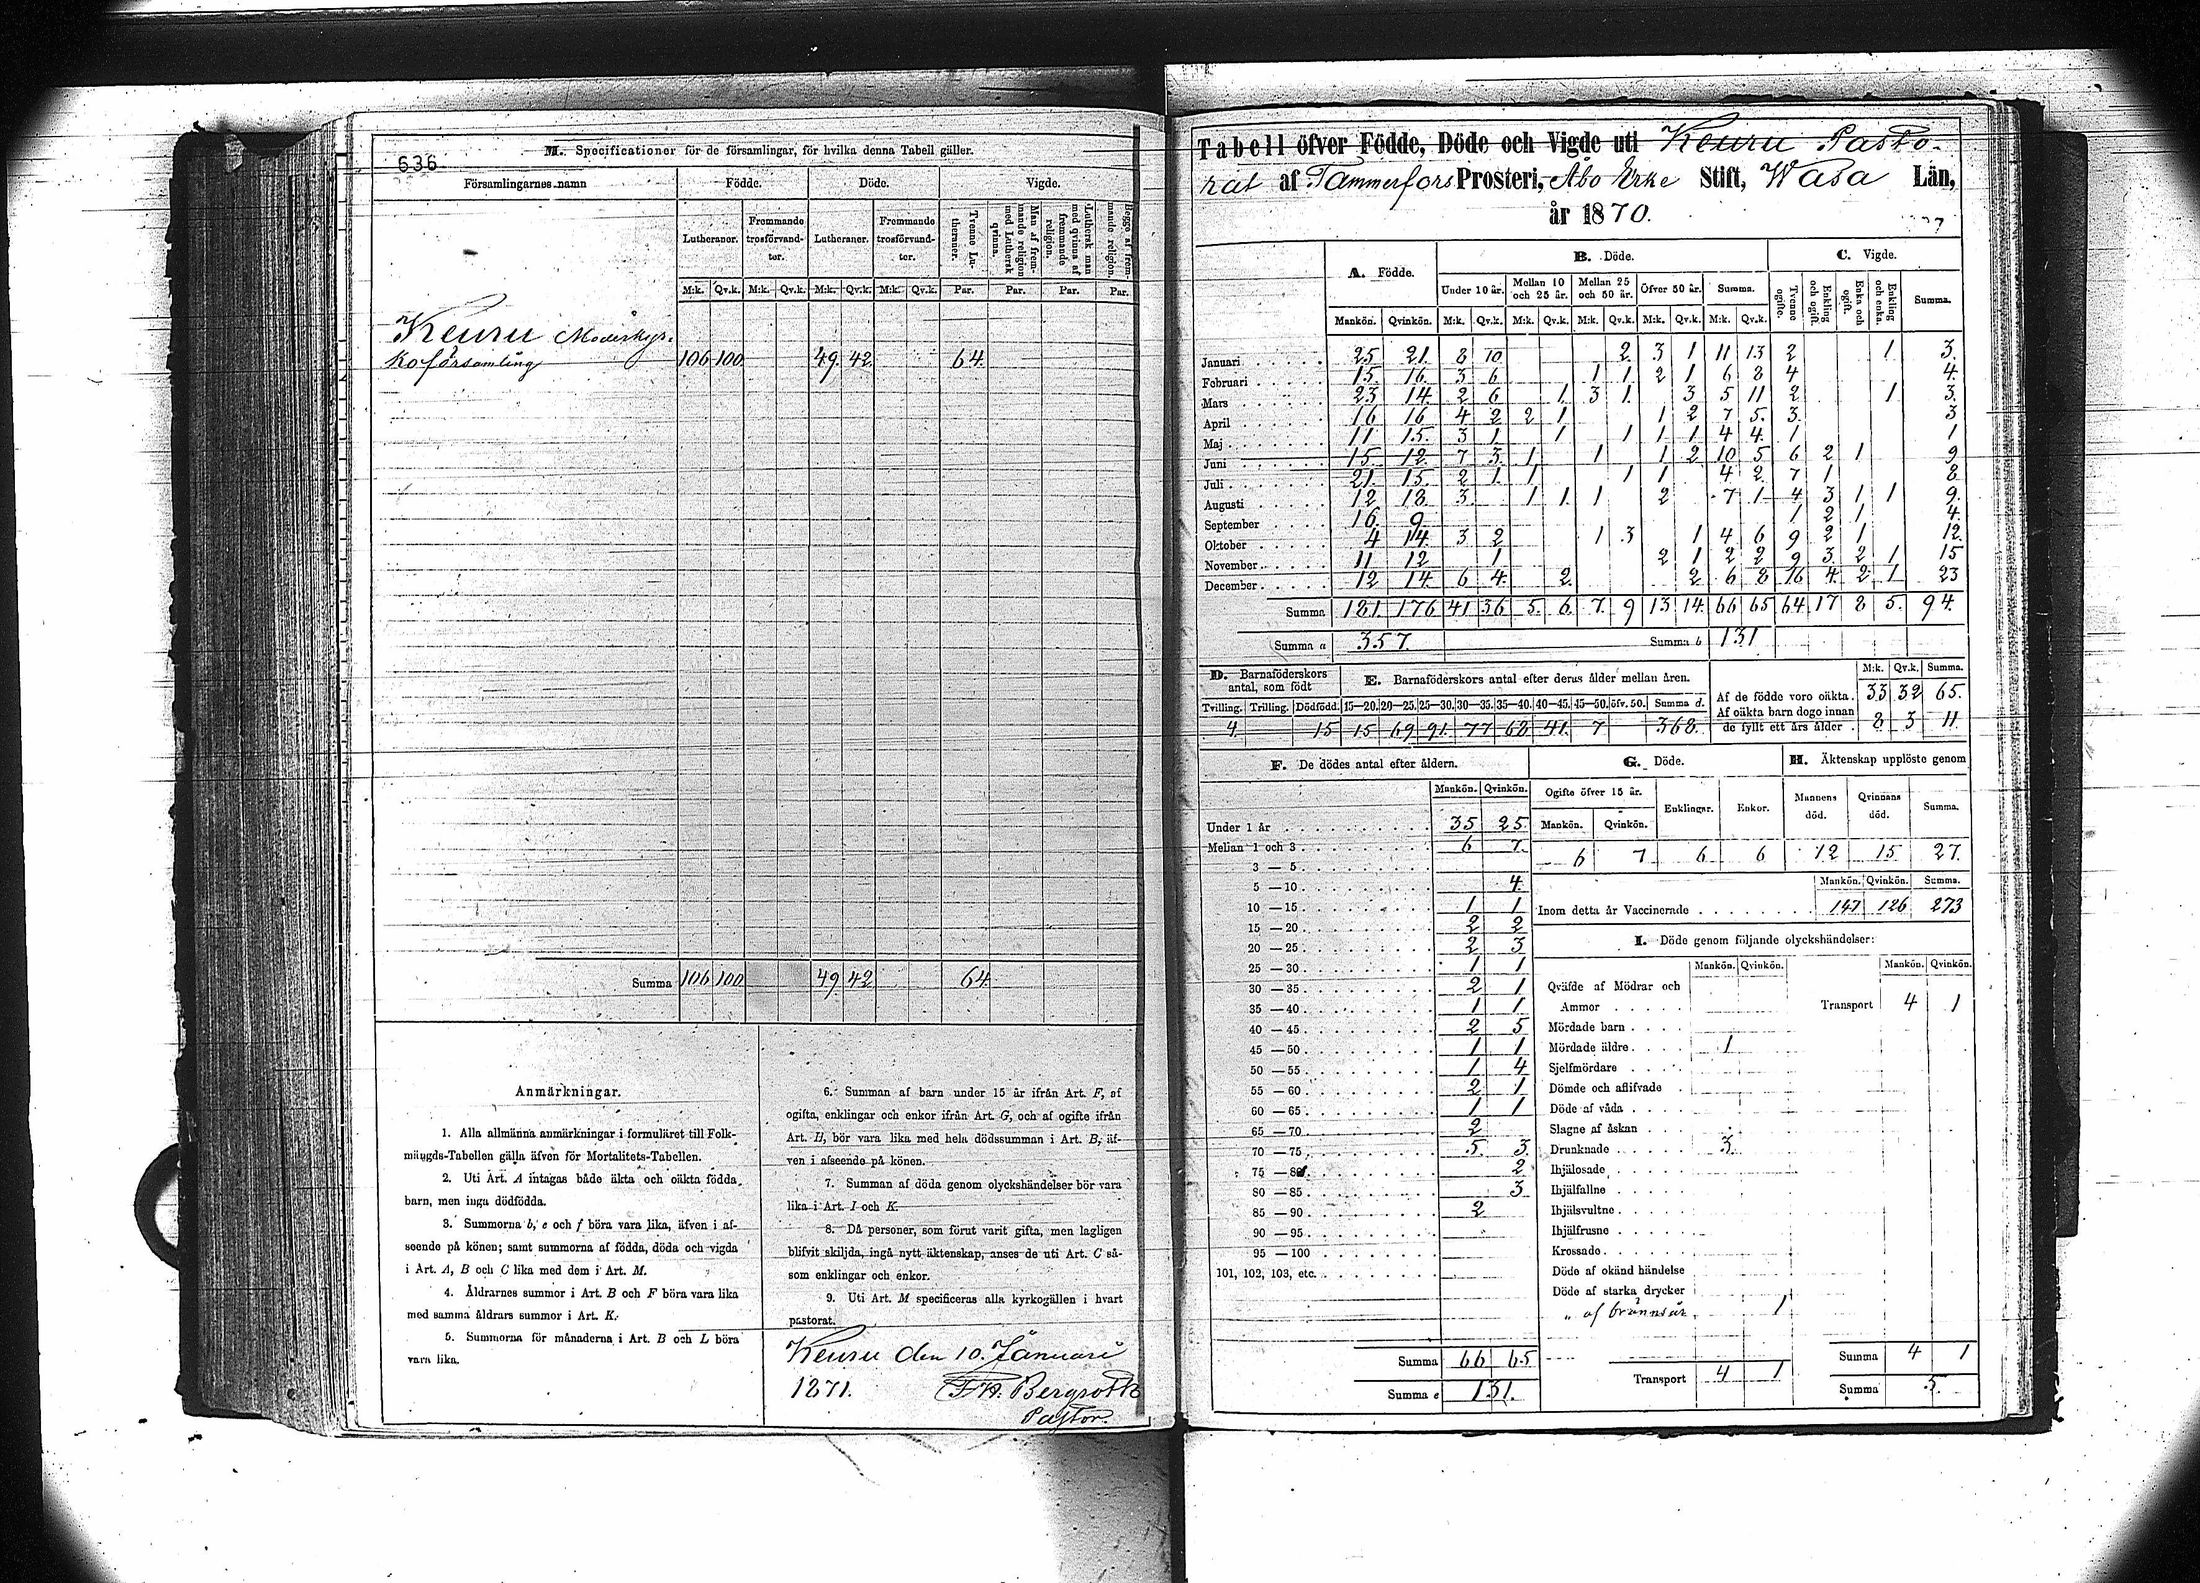 636
M. Specificationer för de församlingar, för hvilka denna Tabell gäller.
Församlingarnes namn Födde. Döde. Vigde.
Lutheraner. Fremmande trosförvandter. Lutheraner. Fremmande trosförvandter. Tvenne Lutheraner. Man af fremmande religion med Luthersk qvinna. Luthersk man med qvinna af fremmande religion. Begge af fremmande religion.
M:k. Qv.k. M:k. Qv.k. M:k. Qv.k. M:k. Qv.k. Par. Par. Par. Par.
Keuru Moderkyr-
koförsamling 106 100 49. 42. 64.
Summa 106 100 49. 42 64.
Anmärkningar.
1. Alla allmänna anmärkningar i formuläret till Folk-
mängds-Tabellen gälla äfven för Mortalitets-Tabellen.
2. Uti Art. A intagas både äkta och oäkta födda
barn, men inga dödfödda.
3. Summorna b, e och f böra vara lika, äfven i af-
seende på könen; samt summorna af födda, döda och vigda
i Art. A, B och C lika med dem i Art. M.
4. Åldrarnes summor i Art. B och F böra vara lika
med samma åldrars summor i Art. K.
5. Summorna för månaderna i Art. B och L böra
vara lika.
6. Summan af barn under 15 år ifrån Art. F, af
ogifta, enklingar och enkor ifrån Art. G, och af ogifte ifrån
Art. H, bör vara lika med hela dödssumman i Art. B, äf-
ven i afseende på könen.
7. Summan af döda genom olyckshändelser bör vara
lika i Art. I och K.
8. Då personer, som förut varit gifta, men lagligen
blifvit skiljda, ingå nytt äktenskap, anses de uti Art. C så-
som enklingar och enkor.
9. Uti Art. M specificeras alla kyrkogällen i hvart
pastorat.
Keuru den 10. Januari
1871. Bergroth
Pastor.
Tabell öfver Födde, Döde och Vigde uti Keuru Pasto-
rat af Tammerfors Prosteri, Åbo Erke Stift, Wasa Län,
år 1870.
A. Födde. B. Döde. C. Vigde.
Under 10 år. Mellan 10 och 25 år. Mellan 25 och 50 år. Öfver 50 år. Summa. Tvenne ogifte. Enkling och ogift. Enka och ogift. Enkling och enka. Summa.
Mankön. Qvinkön. M:k. Qv.k. M:k. Qv.k. M:k. Qv.k. M:k. Qv.k. M:k. Qv.k.
Januari 25 21. 8 10 2. 3 1 11 13 2 1 3.
Februari 15. 16. 3 6 1 1 2 1 6 8 4 4.
Mars 23 14. 2 6 1. 3 1. 3 5 11 2 1 3.
April 16 16 4 2 2 1 1 2 7 5. 3. 3
Maj 11 15. 3 1. 1 1 1 1 4 4. 1 1
Juni 15 12 7 3. 1 1 1 2 10 5 6 2 1 9
Juli 21. 15. 2 1. 1 1 1 4 2. 7 1 8
Augusti 12 18 3. 1 1. 1 2 7 1 4 3 1 1 9.
September 16. 9 1 2 1 4.
Oktober 4 14. 3 2 1 3 1 4 6 9 2 1 12.
November 11 12 1 2 1 2 2 9 3 2 1 15
December 12 14. 6 4. 2. 2 6 8 16 4. 2 1 23
Summa 181. 176 41 36 5. 6. 7. 9 13 14. 66 65 64 17 8 5. 94.
Summa a 357 Summa b 131
D. Barnaföderskors antal, som födt E. Barnaföderskors antal efter deras ålder mellan åren. M:k. Qv.k. Summa.
Tvilling. Trilling. Dödfödd. 15—20. 20—25. 25—30. 30—35. 35—40. 40—45. 45—50. öfv. 50. Summa d.
4. 15 15 69 91. 77 68. 41. 7 368.
Af de födde voro oäkta. 33 32 65.
Af oäkta barn dogo innan
de fyllt ett års ålder. 8 3 11
F. De dödes antal efter åldern.
Mankön. Qvinkön.
Under 1 år 35 25
Mellan 1 och 3 6 7.
3 — 5
5 — 10 4.
10 — 15 1 1
15 — 20 2 2
20 — 25 2 3
25 — 30 1 1
30 — 35 2 1
35 — 40 1 1
40 — 45 2 5
45 — 50 1 1
50 — 55 1 4
55 — 60 2 1
60 — 65 1 1
65 — 70 2
70 — 75 5 3.
75 — 80 2
80 — 85 3
85 — 90 2
90 — 95
95 — 100
101, 102, 103, etc.
Summa 66 65
Summa e 131.
G. Döde.
Ogifte öfver 15 år. Enklingar. Enkor.
Mankön. Qvinkön.
6 7 6 6
H. Äktenskap upplöste genom
Mannens död. Qvinnans död. Summa.
12 15 27.
Mankön. Qvinkön. Summa.
Inom detta år Vaccinerade 147 126 273
I. Döde genom följande olyckshändelser:
Mankön. Qvinkön. Mankön. Qvinkön.
Qväfde af Mödrar och
Ammor Transport 4 1
Mördade barn
Mördade äldre 1
Sjelfmördare
Dömde och aflifvade
Döde af våda
Slagne af åskan
Drunknade 3.
Ihjälosade
Ihjälfallne
Ihjälsvultne
Ihjälfrusne
Krossade
Döde af okänd händelse
Döde af starka drycker
„ af brännsår 1
Transport 4 1
Summa 4 1
Summa 5.